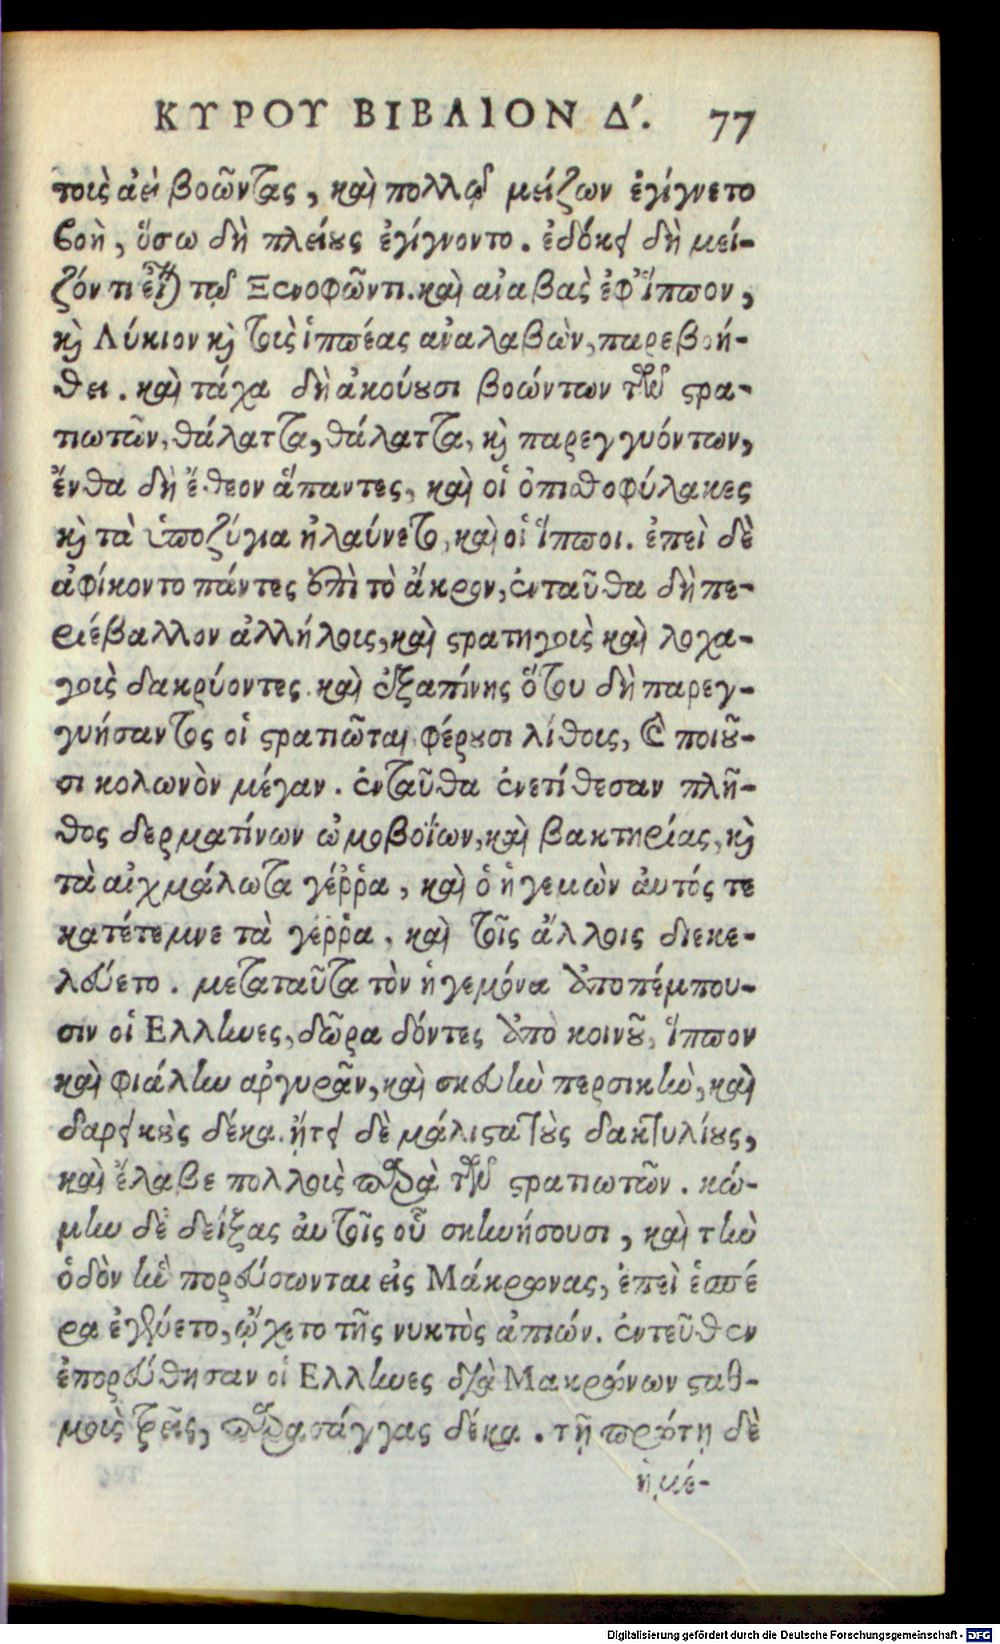 ΚΥΡΟΥ ΒΙΒΛΙΟΝ Δ΄. 77
τοὺς ἀεὶ βοῶντας, καὶ πολλῷ μείζων ἐγίγνετο
βοὴ, ὅσῳ δὴ πλείους ἐγίγνοντο. ἐδόκει δὴ μεί-
ζόν τι εἶναι τῷ Ξενοφῶντι. καὶ ἀναβὰς ἐφ' ἵππον,
καὶ Λύκιον καὶ τοὺς ἱππέας ἀναλαβὼν, παρεβοή-
θει. καὶ τάχα δὴ ἀκούουσι βοώντων τῶν στρα-
τιωτῶν, θάλαττα, θάλαττα, καὶ παρεγγυόντων,
ἔνθα δὴ ἔθεον ἅπαντες, καὶ οἱ ὀπισθοφύλακες
καὶ τὰ ὑποζύγια ἠλαύνετο, καὶ οἱ ἵπποι. ἐπεὶ δὲ
ἀφίκοντο πάντες ἐπὶ τὸ ἄκρον, ἐνταῦθα δὴ πε-
ριέβαλλον ἀλλήλοις, καὶ στρατηγοὺς καὶ λοχα-
γοὺς δακρύοντες. καὶ ἐξαπίνης ὅτου δὴ παρεγ-
γυήσαντος οἱ στρατιῶται φέρουσι λίθους, καὶ ποιοῦ-
σι κολωνὸν μέγαν. ἐνταῦθα ἐνετίθεσαν πλῆ-
θος δερματίνων ὠμοβοΐων, καὶ βακτηρίας, καὶ
τὰ αἰχμάλωτα γέῤῥα, καὶ ὁ ἡγεμὼν αὐτός τε
κατέτεμνε τὰ γέῤῥα, καὶ τοῖς ἄλλοις διεκε-
λεύετο. μετὰ ταῦτα τὸν ἡγεμόνα ἀποπέμπου-
σιν οἱ Ελληνες, δῶρα δόντες ἀπὸ κοινοῦ, ἵππον
καὶ φιάλην ἀργυρᾶν, καὶ σκευὴν περσικὴν, καὶ
δαρεικοὺς δέκα. ᾔτει δὲ μάλιστα τοὺς δακτυλίους,
καὶ ἔλαβε πολλοὺς παρὰ τῶν στρατιωτῶν. κώ-
μην δὲ δείξας αὐτοῖς οὗ σκηνήσουσι, καὶ τὴν
ὁδὸν ἣν πορεύσωνται εἰς Μάκρωνας, ἐπεὶ ἑσπέ
ρα ἐγένετο, ᾤχετο τῆς νυκτὸς ἀπιών. ἐντεῦθεν
ἐπορεύθησαν οἱ Ελληνες διὰ Μακρώνων σταθ-
μοὺς τρεῖς, παρασάγγας δέκα. τῇ πρώτῃ δὲ
ἡμέ-
Digitalisierung gefördert durch die Deutsche Forschungsgemeinschaft - DFG